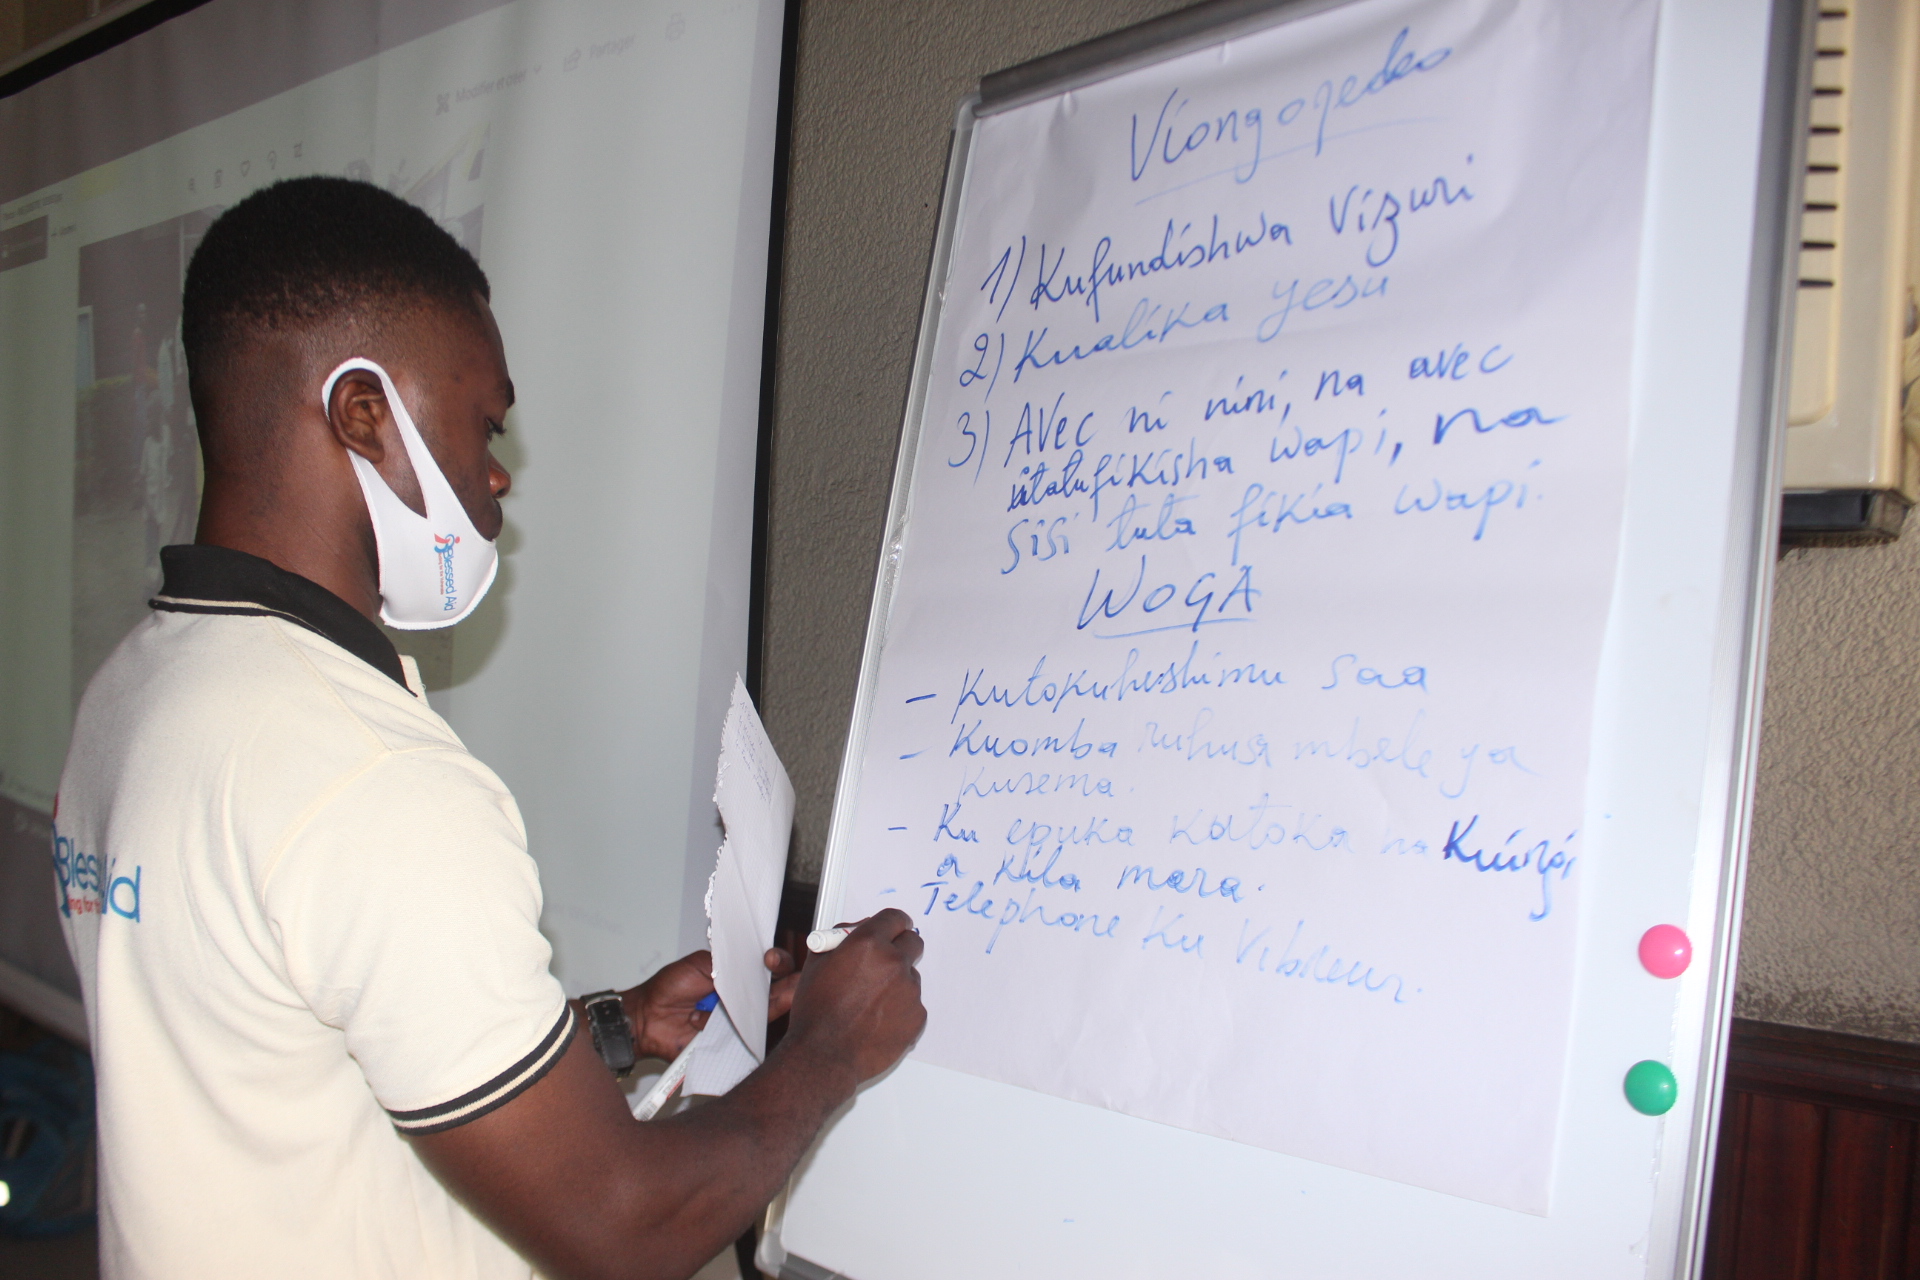 Partager
1) Kufundishwa Vizuri
2) Kualika yesu
3) AVEC ni nini, na avec
itatufikisha wapi, na
Sisi tuta fikia wapi.
WOGA
- Kutokuheshimu saa
- Kuomba ruhusa mbele ya
Kusema.
- Ku epuka Katoka na Kuingi
a Kila mara.
- Telephone Ku Vibreur.
Blessed Aid
Bles id
ng for t